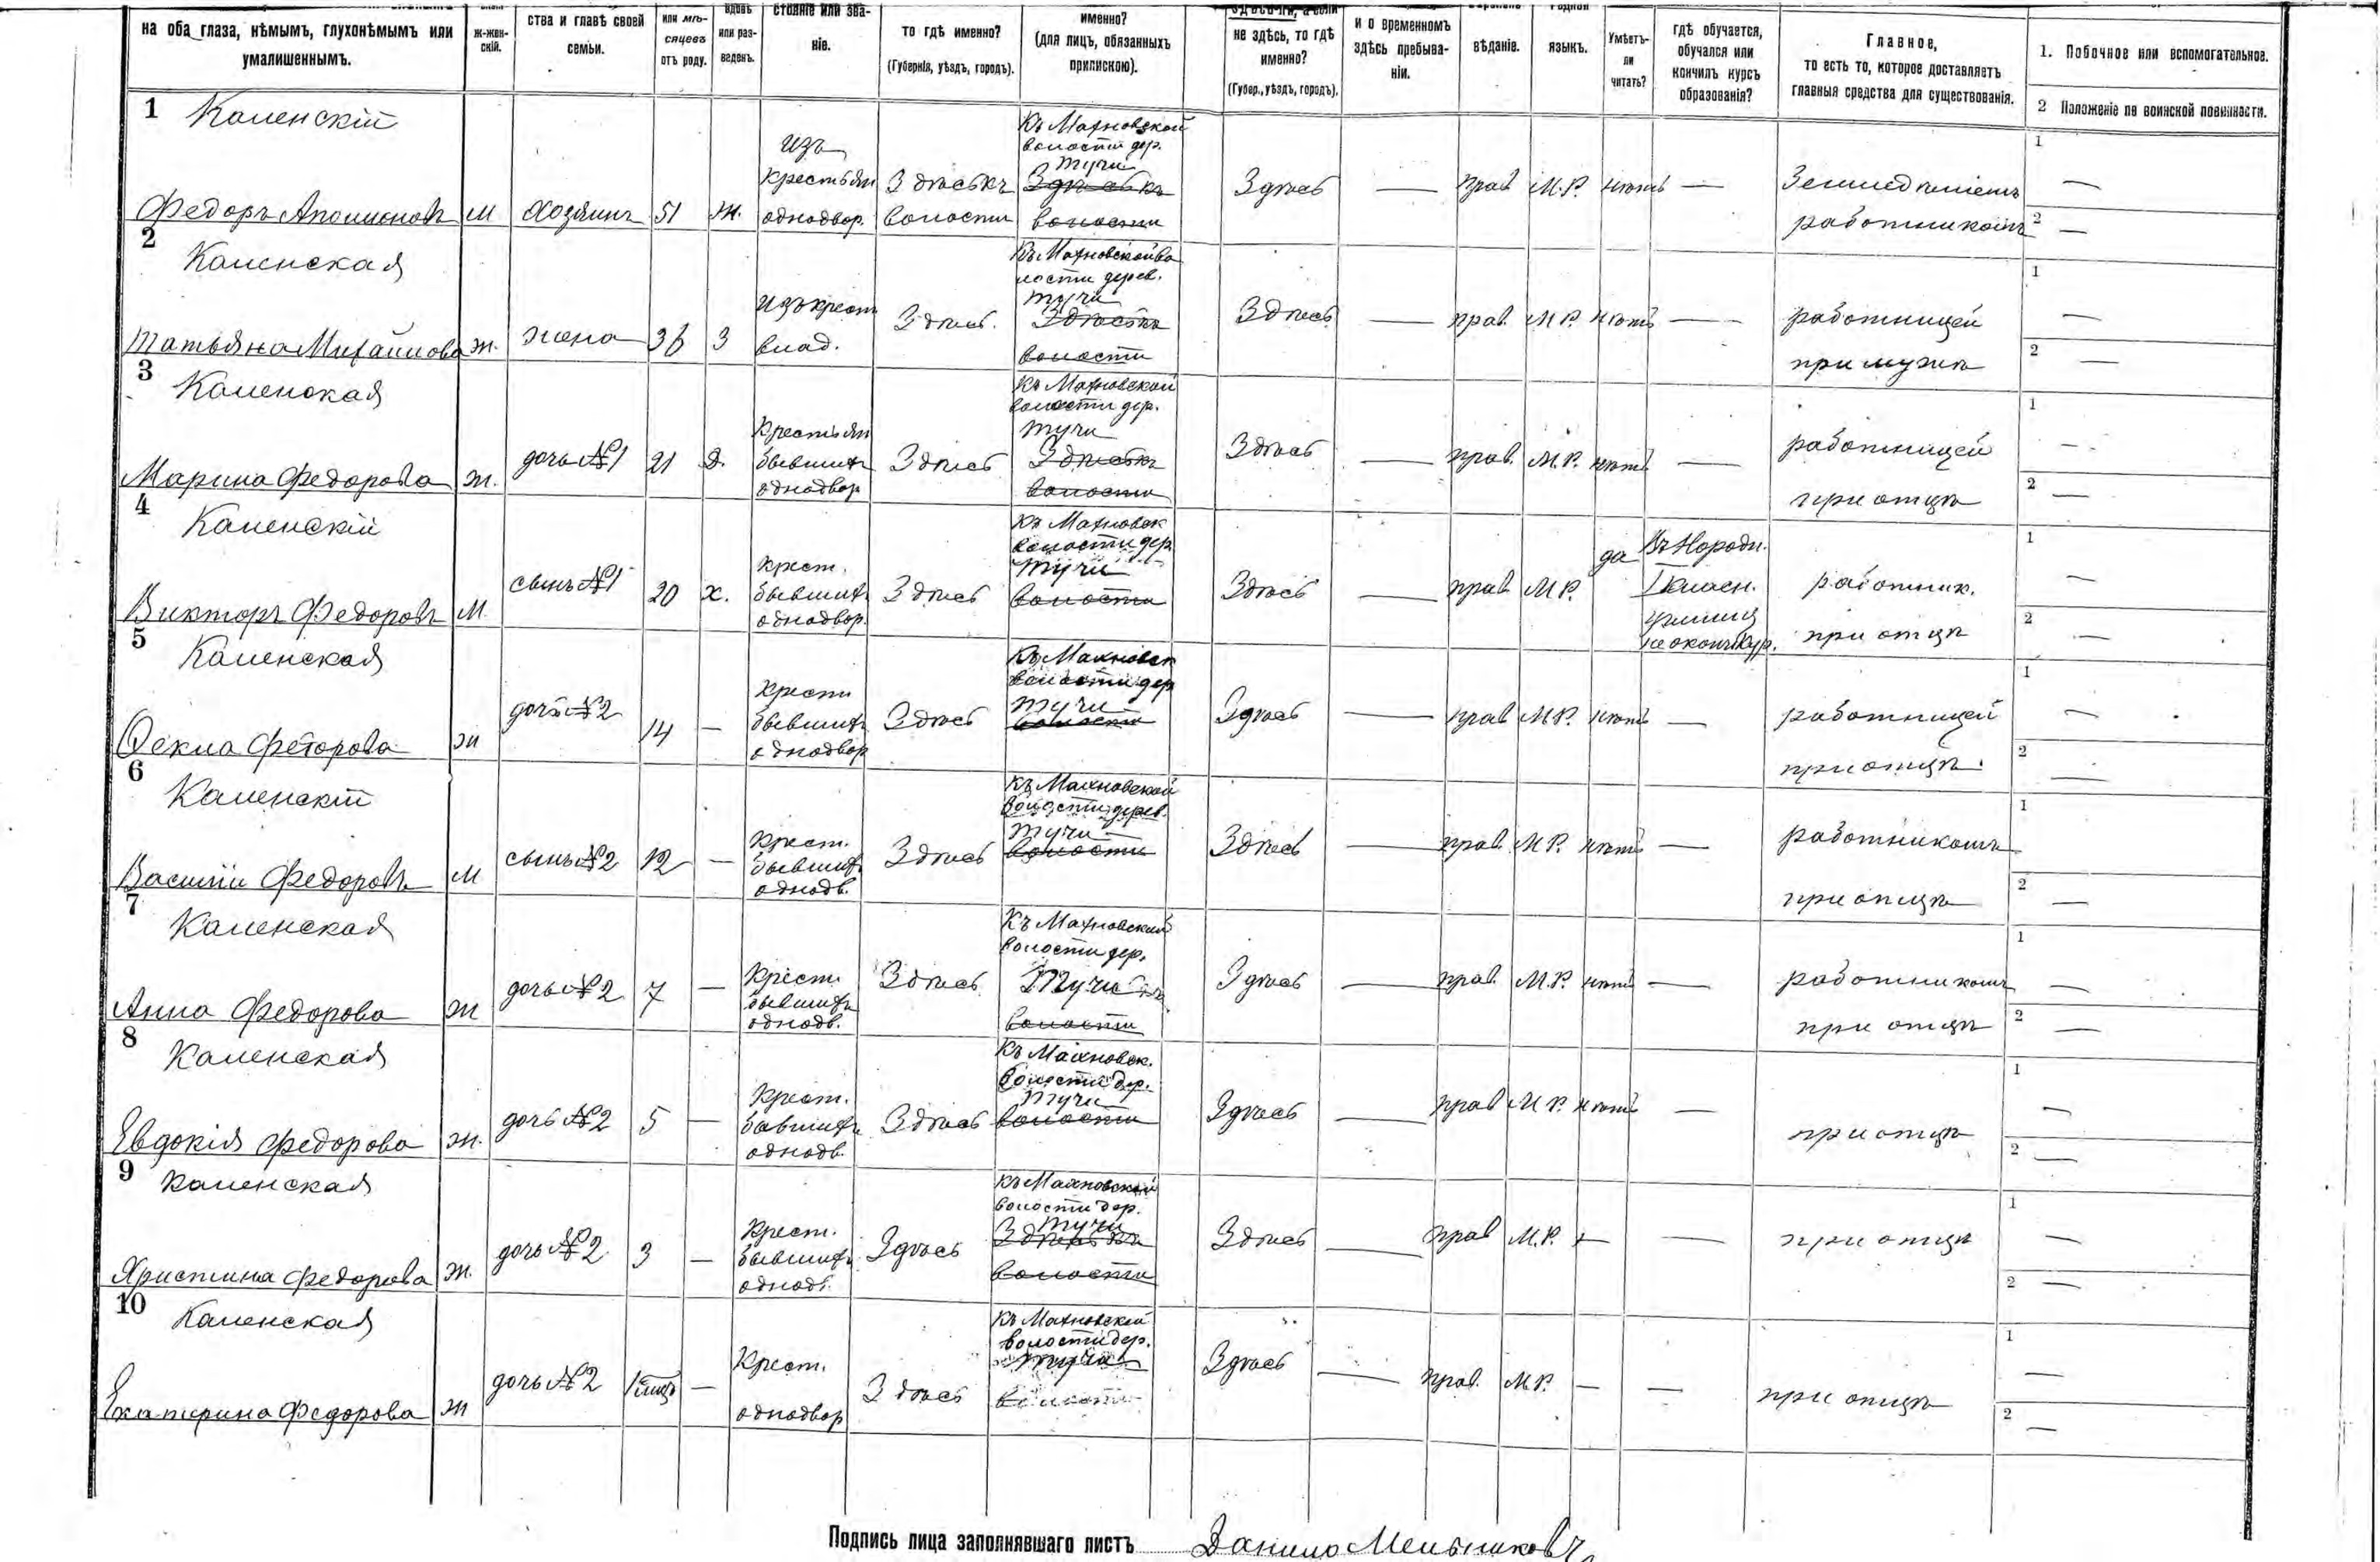 на оба глаза, нѣмымъ, глухонѣмымъ или
умалишеннымъ.
ж-жен-
скій.
ства и главѣ своей
семьи.
или мѣ-
сяцевъ
отъ роду.
вдовъ
или раз-
веденъ.
стояніе или зва-
ніе.
то гдѣ именно?
(Губернія, уѣздъ, городъ).
именно?
(для лицъ, обязанныхъ
припискою).
не здѣсь, то гдѣ
именно?
(Губер., уѣздъ, городъ).
и о временномъ
здѣсь пребыва-
ніи.
вѣданіе.
языкъ.
Умѣетъ-
ли
читать?
гдѣ обучается,
обучался или
кончилъ курсъ
образованія?
Главное,
то есть то, которое доставляетъ
главныя средства для существованія.
1. Побочное или вспомогательное.
2 Положеніе по воинской повинности.
1 Каленскій
Федоръ М Хозяинъ 51 Ж.
изъ
крестьян
однодвор.
Здѣськъ
волости
Къ Махновской
волости дер.
Тучи
Здѣськъ
волости
Здѣсь — прав М.Р. нѣтъ —
Земледѣліемъ
работникомъ
1 —
2 —
2 Каленская
Татьяна Михайлова ж. жена 36 З
изъ крест
влад.
Здѣсь.
Къ Махновской во
лости дерев.
Тучи
Здѣськъ
волости
Здѣсь — прав. М.Р. нѣтъ —
работницей
при мужѣ
1 —
2 —
3 Каленская
Марина Федорова ж. дочь №1 21 Д.
Крестьян
бывших
однодвор
Здѣсь
Къ Махновской
волости дер.
Тучи
Здѣськъ
волости
Здѣсь — прав. М.Р. нѣтъ —
работницей
при отцѣ
1 —
2 —
4 Каленскій
Викторъ Федоровъ М. сынъ №1 20 Х.
Крест.
бывших
однодвор.
Здѣсь
Къ Махновск
волости дер
Тучи
волости
Здѣсь — прав М.Р. да
Въ Народн.
училищ
не оконч. кур.
работник.
при отцѣ
1 —
2 —
5 Каленская
Ѳекла Феторова ж дочь №2 14 —
Крестн
бывших
однодвор
Здѣсь
Къ Махновск
волости дер
Тучи
волости
Здѣсь — прав М.Р. нѣтъ —
работницей
при отцѣ.
1 —
2 —
6 Каленскій
Василій Федоровъ М сынъ №2 12 —
Крест.
бывших
однодв.
Здѣсь
Къ Махновской
волости дерев.
Тучи
волости
Здѣсь — прав. М.Р. нѣтъ —
работникомъ
при отцѣ
1
2 —
7 Каленская
Анна Федорова ж дочь №2 7 —
Крестн
бывших
однодв.
Здѣсь
Къ Махновский
волости дер.
Тучи
волости
Здѣсь — прав. М.Р. нѣтъ —
работникомъ
при отцѣ
1 —
2 —
8 Каленская
Евдокія Федорова ж. дочь №2 5 —
Крест.
бывших
однодв.
Здѣсь
Къ Махновск.
волости дер.
Тучи
волости
Здѣсь — прав М.Р. нѣтъ —
при отцѣ
1 —
2 —
9 Каленская
Христина Федорова ж. дочь №2 3 —
Крест.
бывших
однодв.
Здѣсь
Къ Махновской
волости дер.
Тучи
волости
Здѣсь — прав М.Р. — —
при отцѣ
1 —
2 —
10 Каленская
Екатерина Федорова ж дочь №2 —
Крест.
однодвор
Здѣсь
Къ Махновской
волости дер.
Тучи
волости
Здѣсь — прав. М.Р. — —
при отцѣ
1 —
2 —
Подпись лица заполнявшаго листъ Данило Мельниковъ